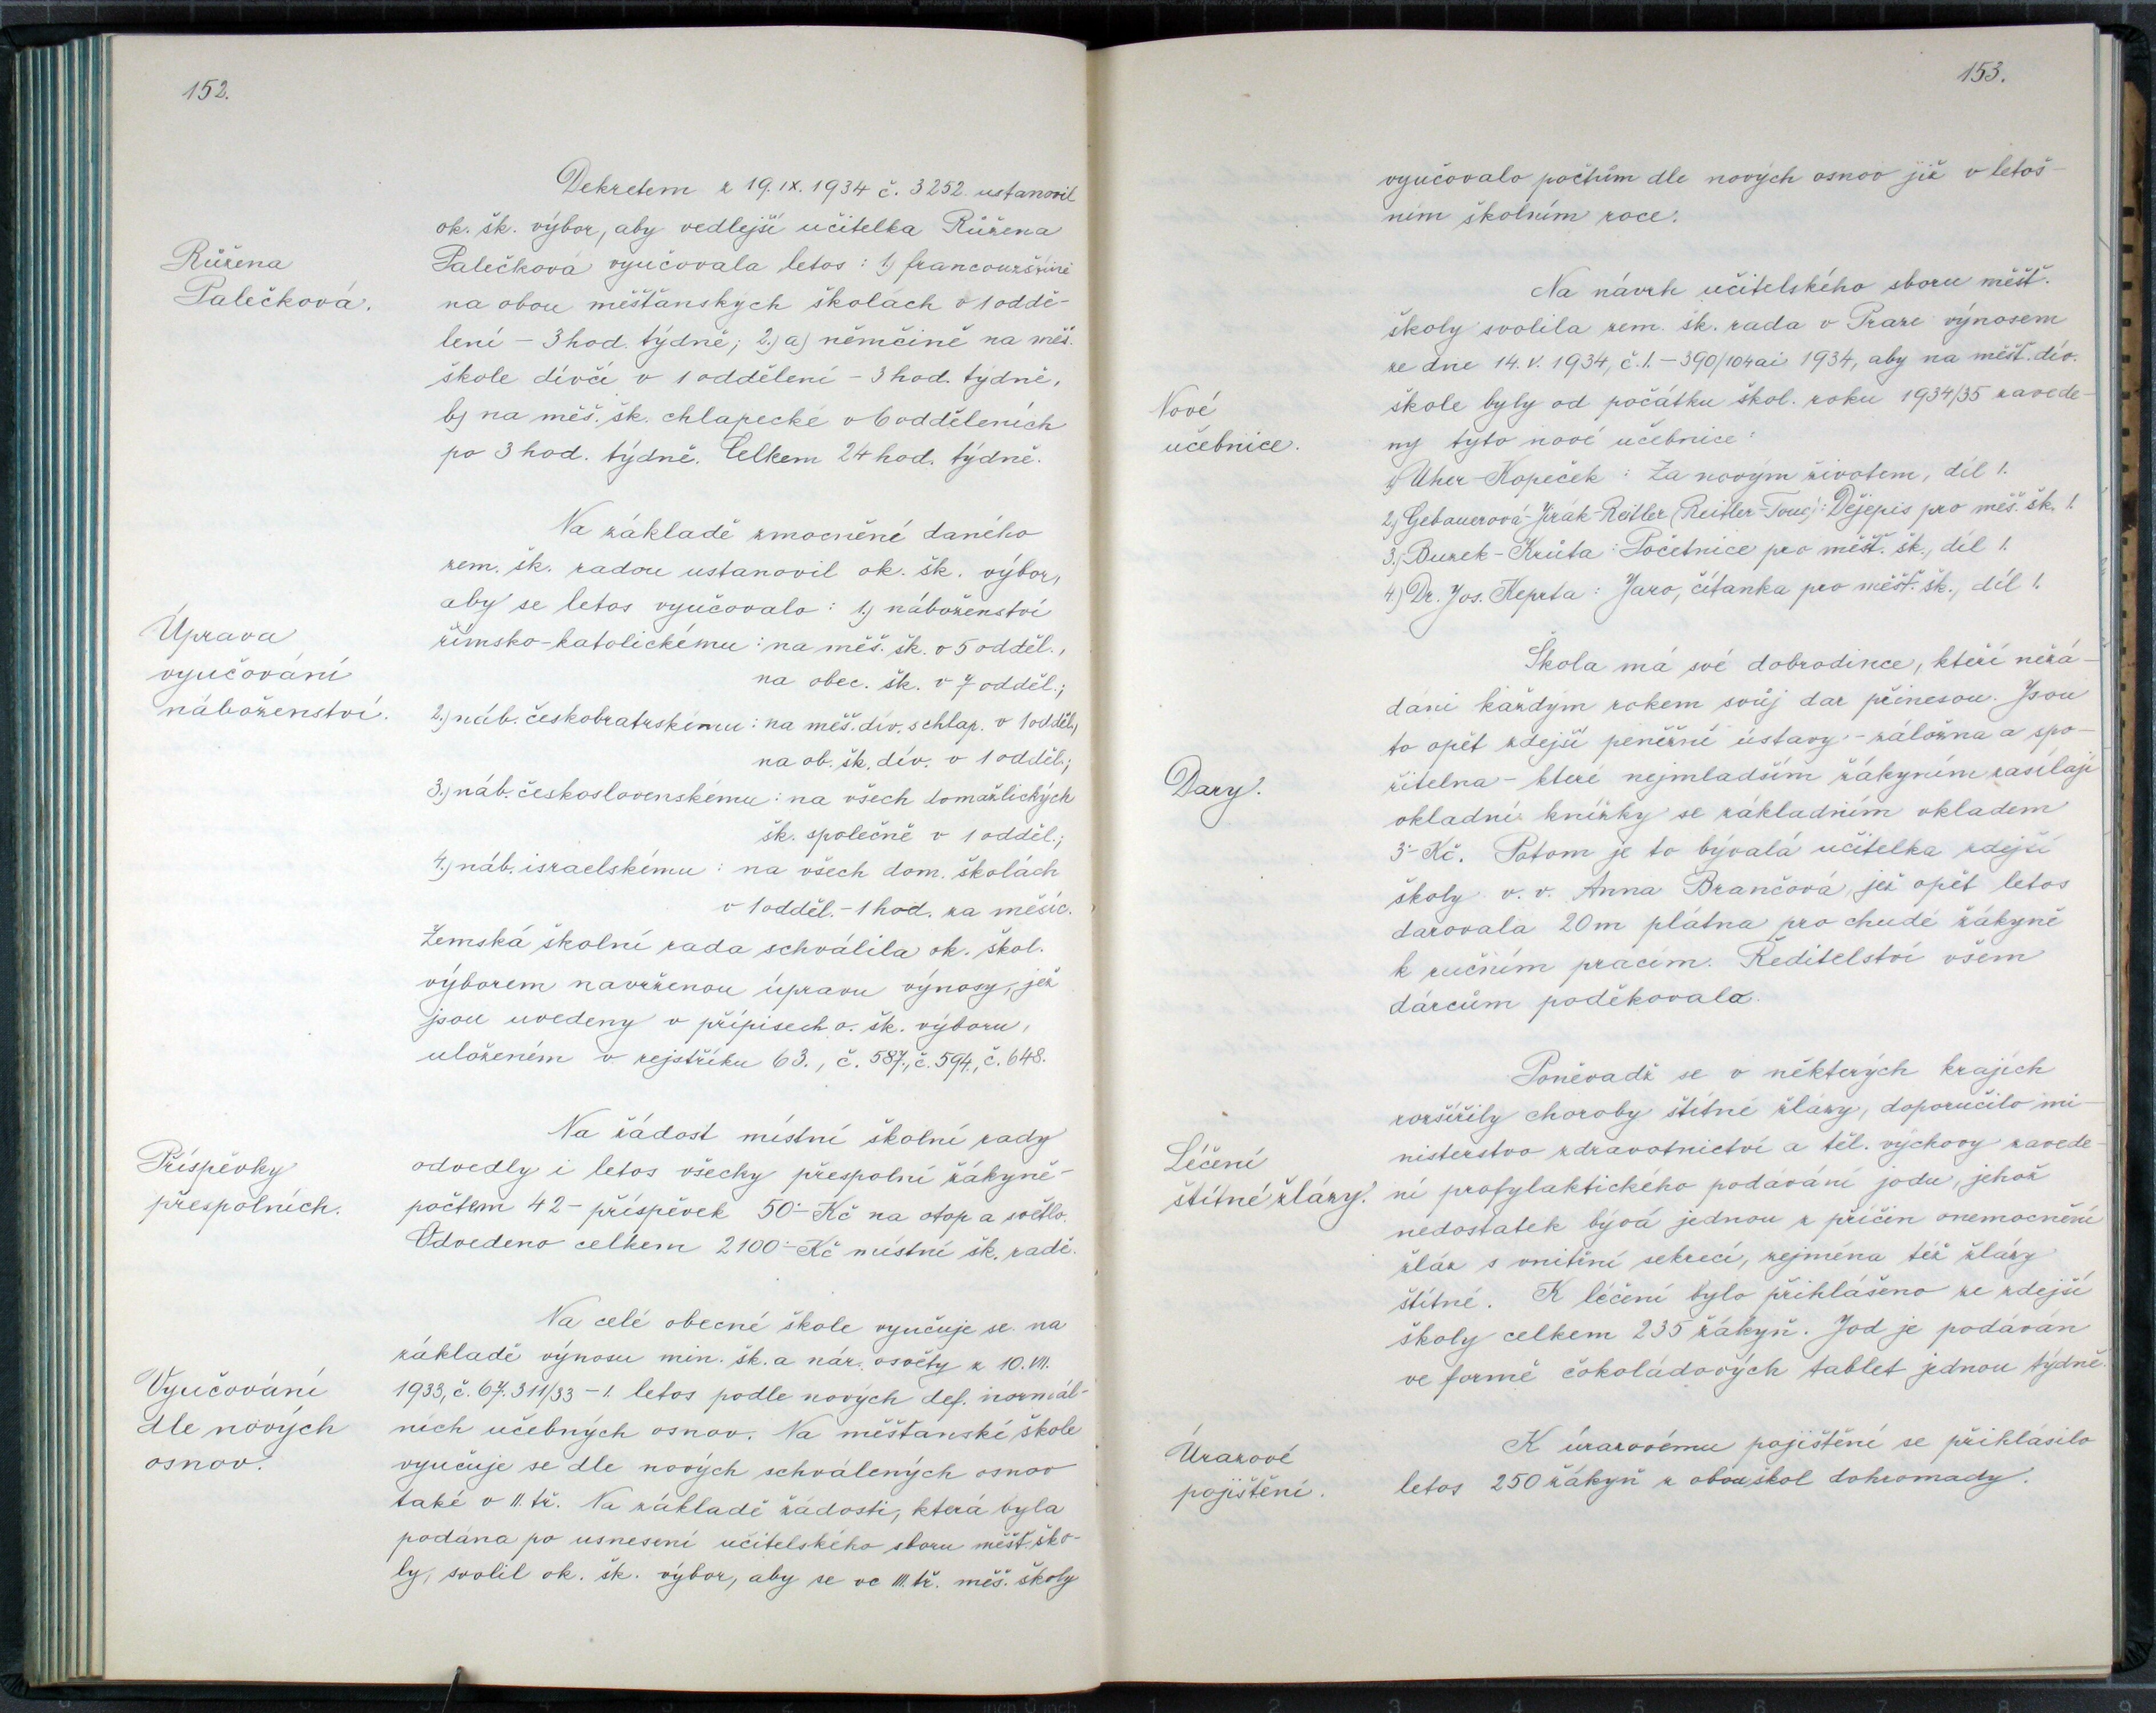 152.
Dekretem z 19. IX. 1934 č. 3252 ustanovil
ok. šk. výbor, aby vedlejší učitelka Růžena
Růžena
Palečková.
Palečková vyučovala letos: 1.) francouzštině
na obou měšťanských školách v 1 oddě-
lení – 3 hod. týdně; 2.) a) němčině na měš.
škole dívčí v 1 oddělení – 3 hod. týdně,
b) na měš. šk. chlapecké v 6 odděleních
po 3 hod. týdně. Celkem 24 hod. týdně.
Na základě zmocnění daného
zem. šk. radou ustanovil ok. šk. výbor,
aby se letos vyučovalo: 1.) náboženství
Úprava
vyučování
náboženství.
římsko-katolickému: na měš. šk. v 5 odděl.,
na obec. šk. v 7 odděl.;
2.) náb. českobratrskému: na měš. dív. s chlap. v 1 odděl.,
na ob. šk. dív. v 1 odděl.;
3.) náb. československému: na všech domažlických
šk. společně v 1 odděl.;
4.) náb. israelskému: na všech dom. školách
v 1 odděl. – 1 hod. za měsíc.
Zemská školní rada schválila ok. škol.
výborem navrženou úpravu výnosy, jež
jsou uvedeny v přípisech o. šk. výboru,
uloženém v rejstříku 63., č. 587., č. 594., č. 648.
Na žádost místní školní rady
Příspěvky
přespolních.
odvedly i letos všecky přespolní žákyně –
počtem 42 – příspěvek 50·– Kč na otop a světlo.
Odvedeno celkem 2100·– Kč místní šk. radě.
Na celé obecné škole vyučuje se na
základě výnosu min. šk. a nár. osvěty z 10. VII.
Vyučování
dle nových
osnov.
1933, č. 67.311/33 – I. letos podle nových def. normál-
ních učebných osnov. Na měšťanské škole
vyučuje se dle nových schválených osnov
také v II. tř. Na základě žádosti, která byla
podána po usnesení učitelského sboru měšť. ško-
ly, svolil ok. šk. výbor, aby se ve III. tř. měš. školy
153.
vyučovalo počtům dle nových osnov již v letoš-
ním školním roce.
Na návrh učitelského sboru měšť.
školy svolila zem. šk. rada v Praze výnosem
ze dne 14. V. 1934, č. I. – 390/104 ai 1934, aby na měšť. dív.
Nové
učebnice.
škole byly od počátku škol. roku 1934/35 zavede-
ny tyto nové učebnice:
1.) Uher-Kopeček: Za novým životem, díl I.
2.) Gebauerová-Jirák-Reitler (Reitler-Touc): Dějepis pro měš. šk. I.
3.) Buzek-Krůta: Početnice pro měšť. šk., díl I.
4.) Dr. Jos. Keprta: Jaro, čítanka pro měšť. šk., díl I.
Škola má své dobrodince, kteří nežá-
dáni každým rokem svůj dar přinesou. Jsou
Dary.
to opět zdejší peněžní ústavy – záložna a spo-
řitelna – které nejmladším žákyním zasílají
vkladní knížky se základním vkladem
3·– Kč. Potom je to bývalá učitelka zdejší
školy v. v. Anna Brančová, jež opět letos
darovala 20 m plátna pro chudé žákyně
k ručním pracím. Ředitelství všem
dárcům poděkovalo.
Poněvadž se v některých krajích
rozšířily choroby štítné žlázy, doporučilo mi-
Léčení
štítné žlázy.
nisterstvo zdravotnictví a těl. výchovy zavede-
ní profylaktického podávání jodu, jehož
nedostatek bývá jednou z příčin onemocnění
žláz s vnitřní sekrecí, zejména též žlázy
štítné. K léčení bylo přihlášeno ze zdejší
školy celkem 235 žákyň. Jod je podáván
ve formě čokoládových tablet jednou týdně.
Úrazové
pojištění.
K úrazovému pojištění se přihlásilo
letos 250 žákyň z obou škol dohromady.